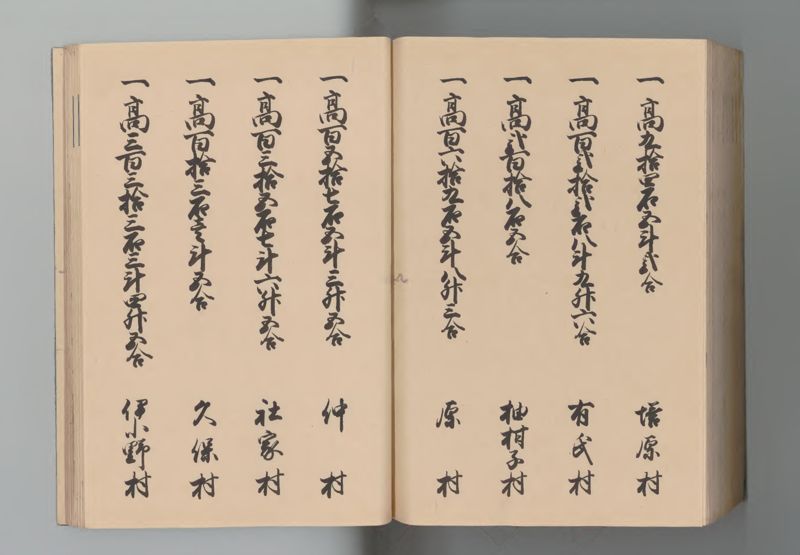 一高九拾四石五斗弐合 塔原村
一高百弐拾弐石八斗九升六合 有氏村
一高弐百拾八石五合 柚柑子村
一高百六拾九石五斗八升三合 原村
一高百五拾七石五斗三升五合 仲村
一高百三拾五石七斗六升五合 社家村
一高百拾三石壱斗五合 久保村
一高三百三拾三石三斗四升五合 伊小野村